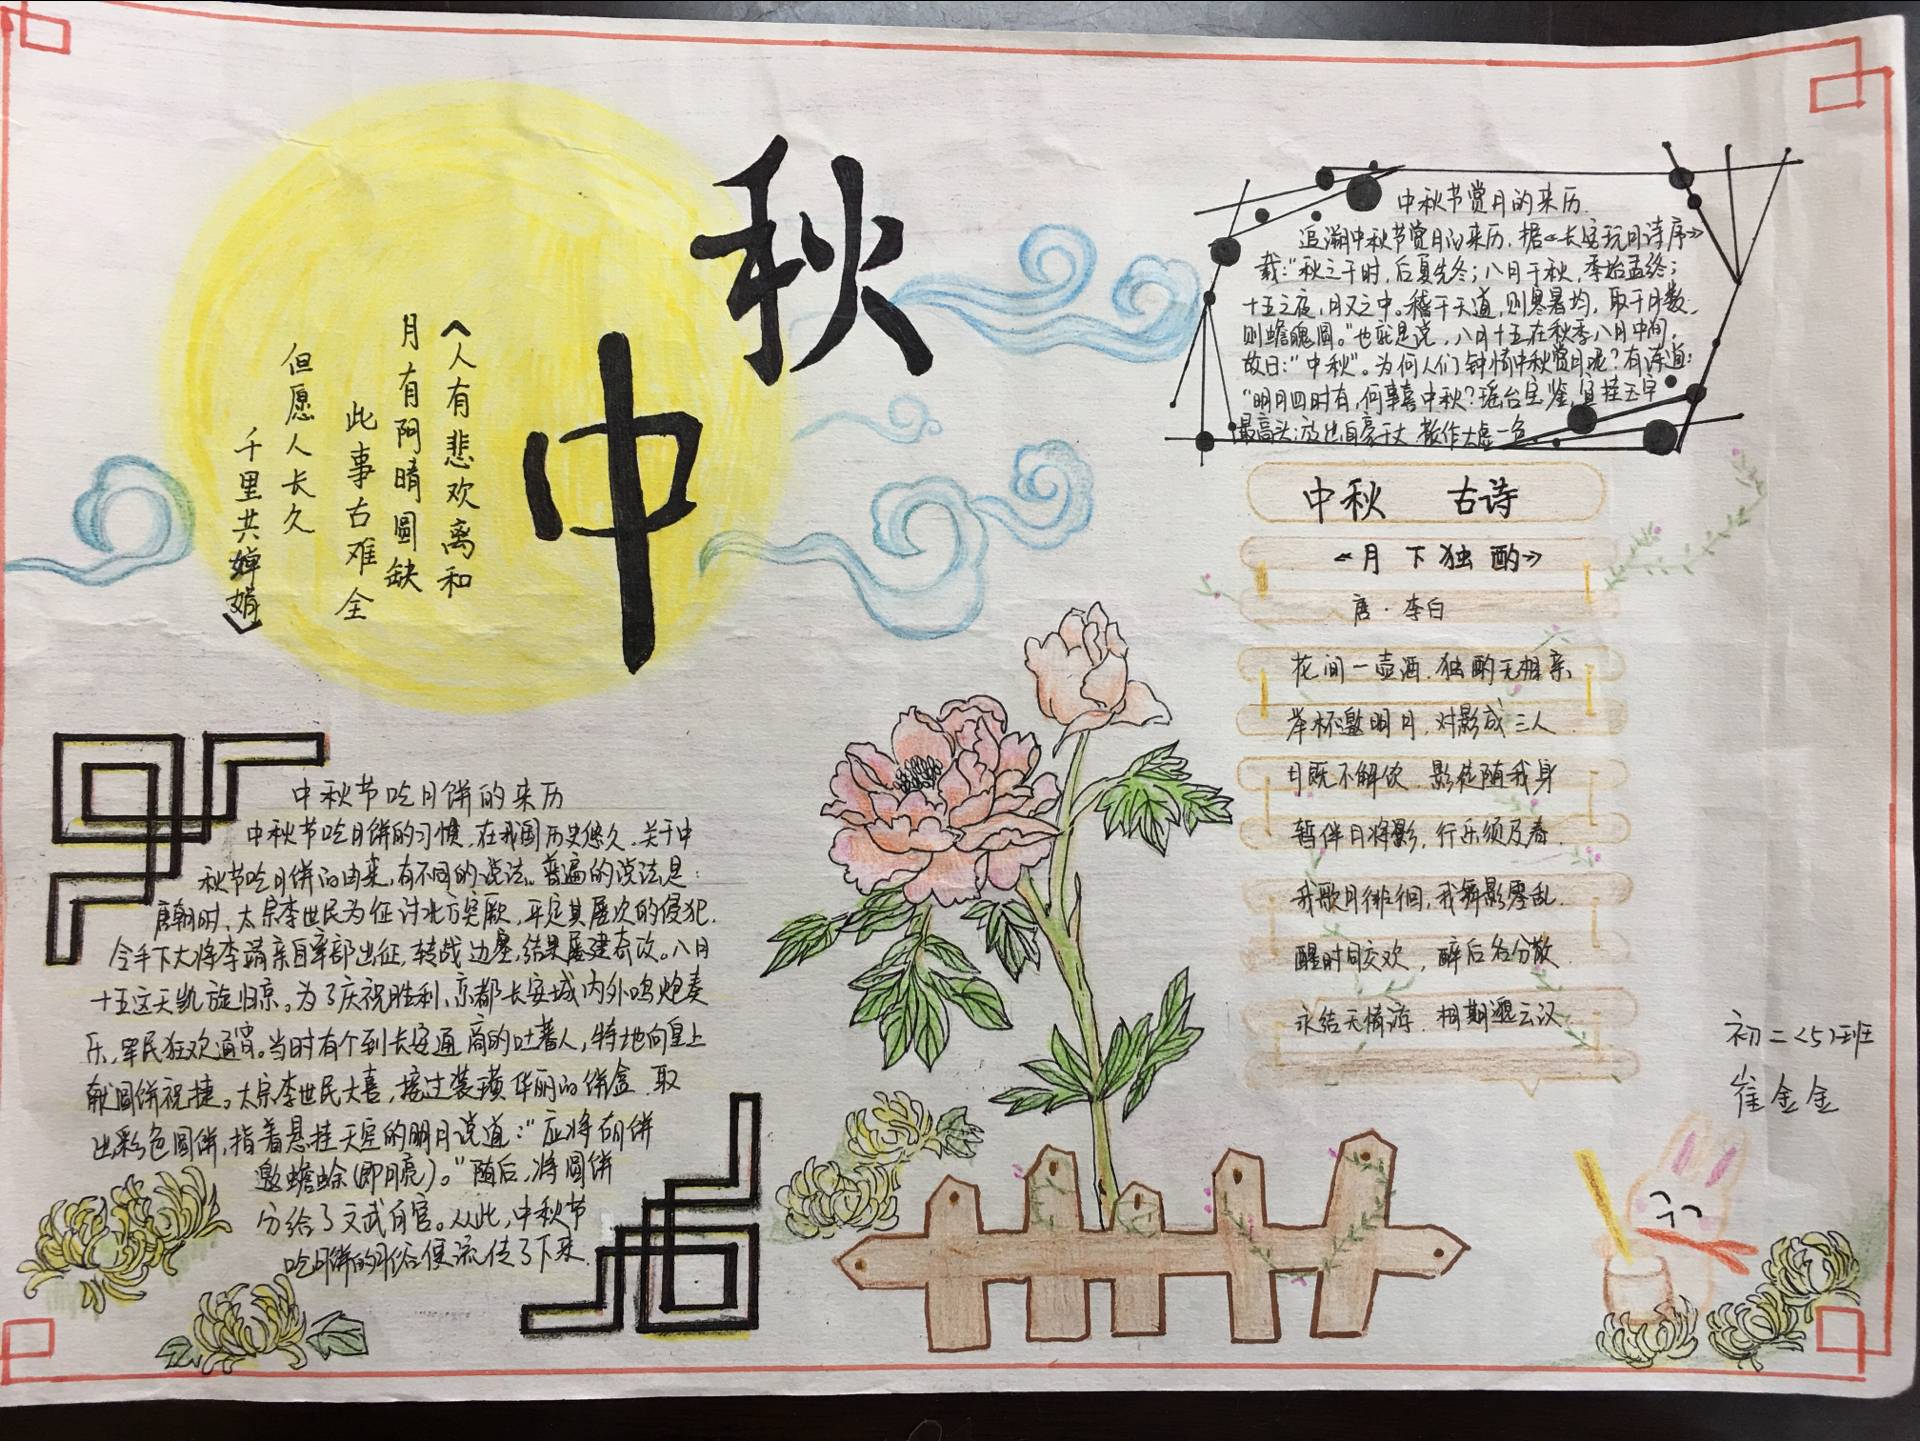 中秋
《人有悲欢离和
月有阴晴圆缺
此事古难全
但愿人长久
千里共婵娟》
中秋节赏月的来历.
追溯中秋节赏月的来历,据《长安玩月诗序》
载:“秋之于时,后夏先冬;八月于秋,季始孟终;
十五之夜,月又之中。稽于天道,则寒暑均,取于月数,
则蟾魄圆。”也就是说,八月十五在秋季八月中间,
故曰:“中秋”。为何人们钟情中秋赏月呢?有诗道:
“明月四时有,何事喜中秋?瑶台宝鉴,宜挂玉宇
最高头;放出白豪千丈,散作太虚一色
中秋 古诗
《月下独酌》
唐·李白
花间一壶酒.独酌无相亲
举杯邀明月,对影成三人
月既不解饮.影徒随我身
暂伴月将影,行乐须及春.
我歌月徘徊,我舞影零乱.
醒时同交欢,醉后各分散.
永结无情游.相期邈云汉
中秋节吃月饼的来历
中秋节吃月饼的习惯,在我国历史悠久.关于中
秋节吃月饼的由来,有不同的说法。普遍的说法是:
唐朝时,太宗李世民为征讨北方突厥,平定其屡次的侵犯.
令手下大将李靖亲自率部出征,转战边塞,结果屡建奇攻。八月
十五这天凯旋归京。为了庆祝胜利,京都长安城内外鸣炮奏
乐,军民狂欢通宵。当时有个到长安通商的吐蕃人,特地向皇上
献圆饼祝捷。太宗李世民大喜,接过装璜华丽的饼盒.取
出彩色圆饼,指着悬挂天空的明月说道:“应将胡饼
邀蟾蜍(即月亮)。”随后,将圆饼
分给了文武百官。从此,中秋节
吃月饼的习俗便流传了下来.
初二〈5〉班
崔金金